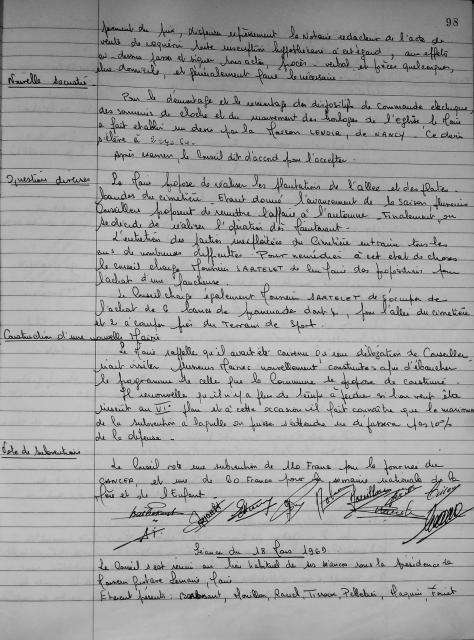 98
paiement du prix, dispense expressément le Notaire rédacteur de l'acte de
vente de requérir toute inscription hypothécaire à cet égard, aux effets
ci-dessus passer et signer tous actes, procès-verbal et pièces quelconques,
élire domicile, et généralement faire le nécessaire
Pour le démontage et le remontage des dispositifs de commande électrique,
des sonneries de cloche et du mouvement des horloges de l'église le Maire
a fait établir un devis par la Maison LENOIR, de NANCY. Ce devis
s'élève à
Après examen, le Conseil dit d'accord pour l'accepter.
Questions diverses
Le Maire propose de réaliser les plantations de l'allée et des plates
bandes du cimetière. Etant donné l'avancement de la saison, plusieurs
Conseillers proposent de remettre l'affaire à l'automne. Finalement, on
se décide de réaliser l'opération dès maintenant.
L'entretien des parties inexploitées du Cimetière entraine tous les
ans de nombreuses difficultés. Pour remédier à cet état de choses
le conseil charge Monsieur SARTELET de lui faire des propositions pour
l'achat d'une faucheuse.
Le Conseil charge également Monsieur SARTELET de s'occuper de
l'achat de 6 bancs de promenade dont 4, pour l'allée du cimetière
et 2 à camper près du Terrain de Sport.
Construction d'une nouvelle Mairie
Le Maire rappelle qu'il avait été convenu qu'une délégation de Conseillers
irait visiter plusieurs Mairies nouvellement construites afin d'ébaucher
le programme de celle que la Commune se propose de construire.
Il renouvelle qu'il n'y a plus de temps à perdre si l'on veut être
inscrit au VI° plan et à cette occasion il fait connaître que le maximum
de la subvention à laquelle on puisse s'attendre ne dépassera pas 10%
de la dépense.
Vote de subventions
Le Conseil vote une subvention de 120 Francs pour la journée du
CANCER, et une de 80 Francs pour la semaine nationale de la
Mère et de l'Enfant
Séance du 18 Mars 1969
Le Conseil s'est réuni au lieu habituel de ses séances sous la présidence de
Monsieur Gustave Lemaire, Maire
Etaient présents: